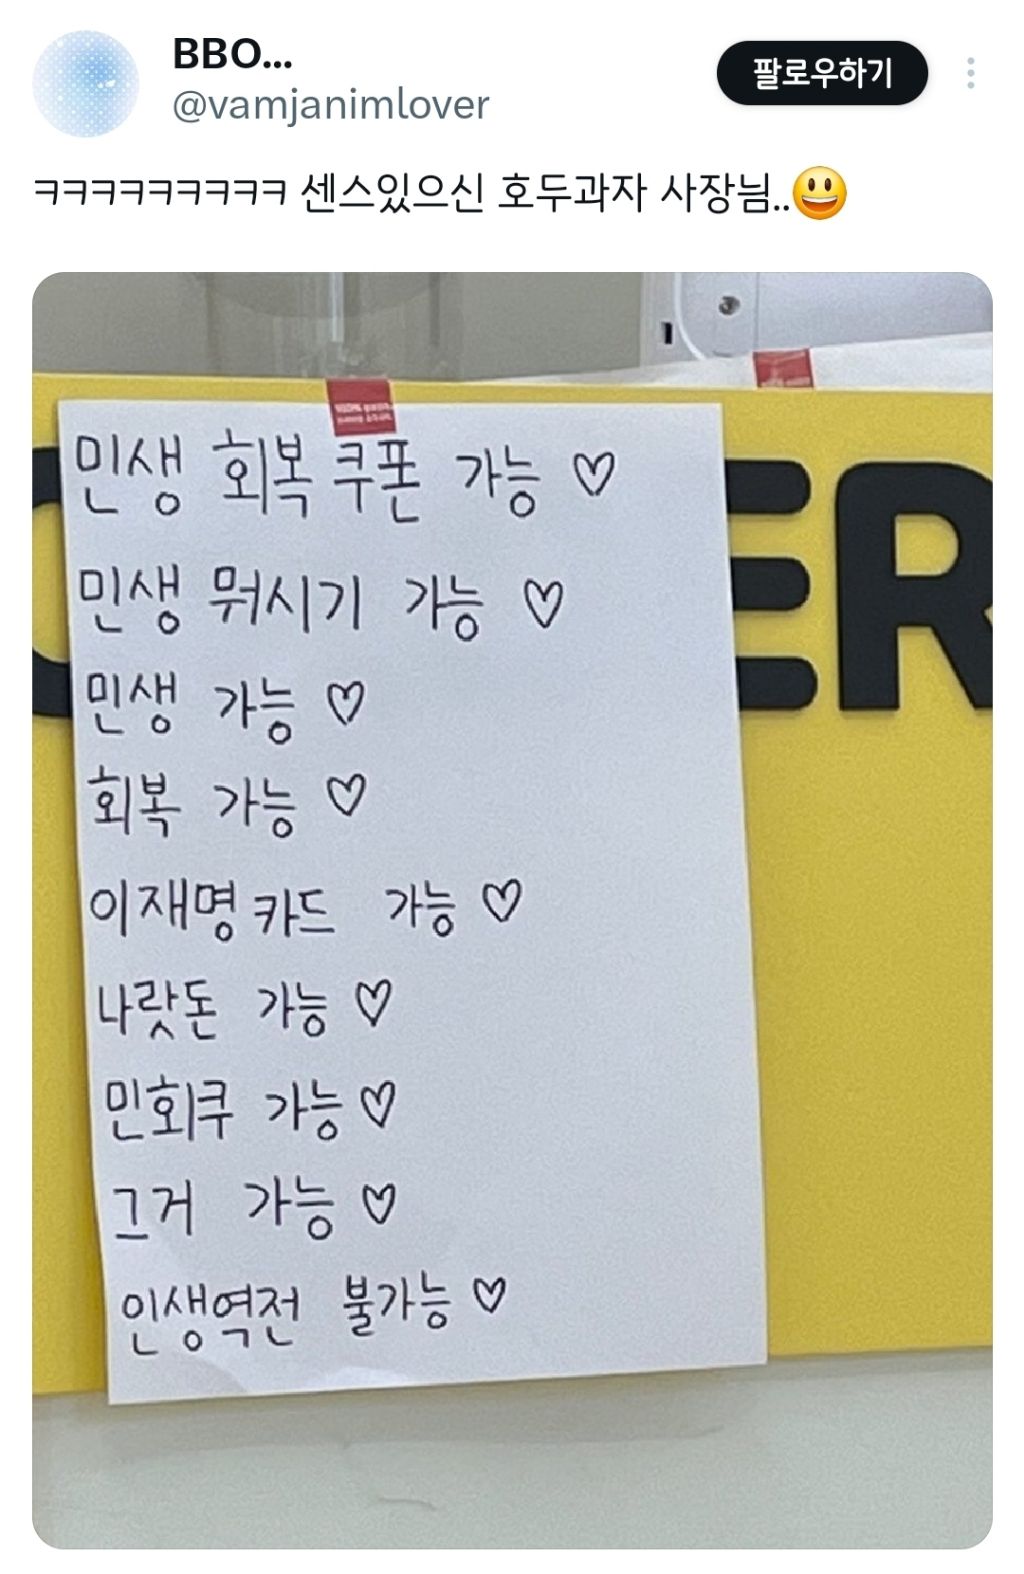 BBO...
@vamjanimlover
팔로우하기
ㅋㅋㅋㅋㅋㅋㅋㅋㅋ 센스있으신 호두과자 사장님..😃
민생 회복 쿠폰 가능 ♡
민생 뭐시기 가능 ♡
민생 가능 ♡
회복 가능 ♡
이재명 카드 가능 ♡
나랏돈 가능 ♡
민회쿠 가능 ♡
그거 가능 ♡
인생역전 불가능 ♡
ER